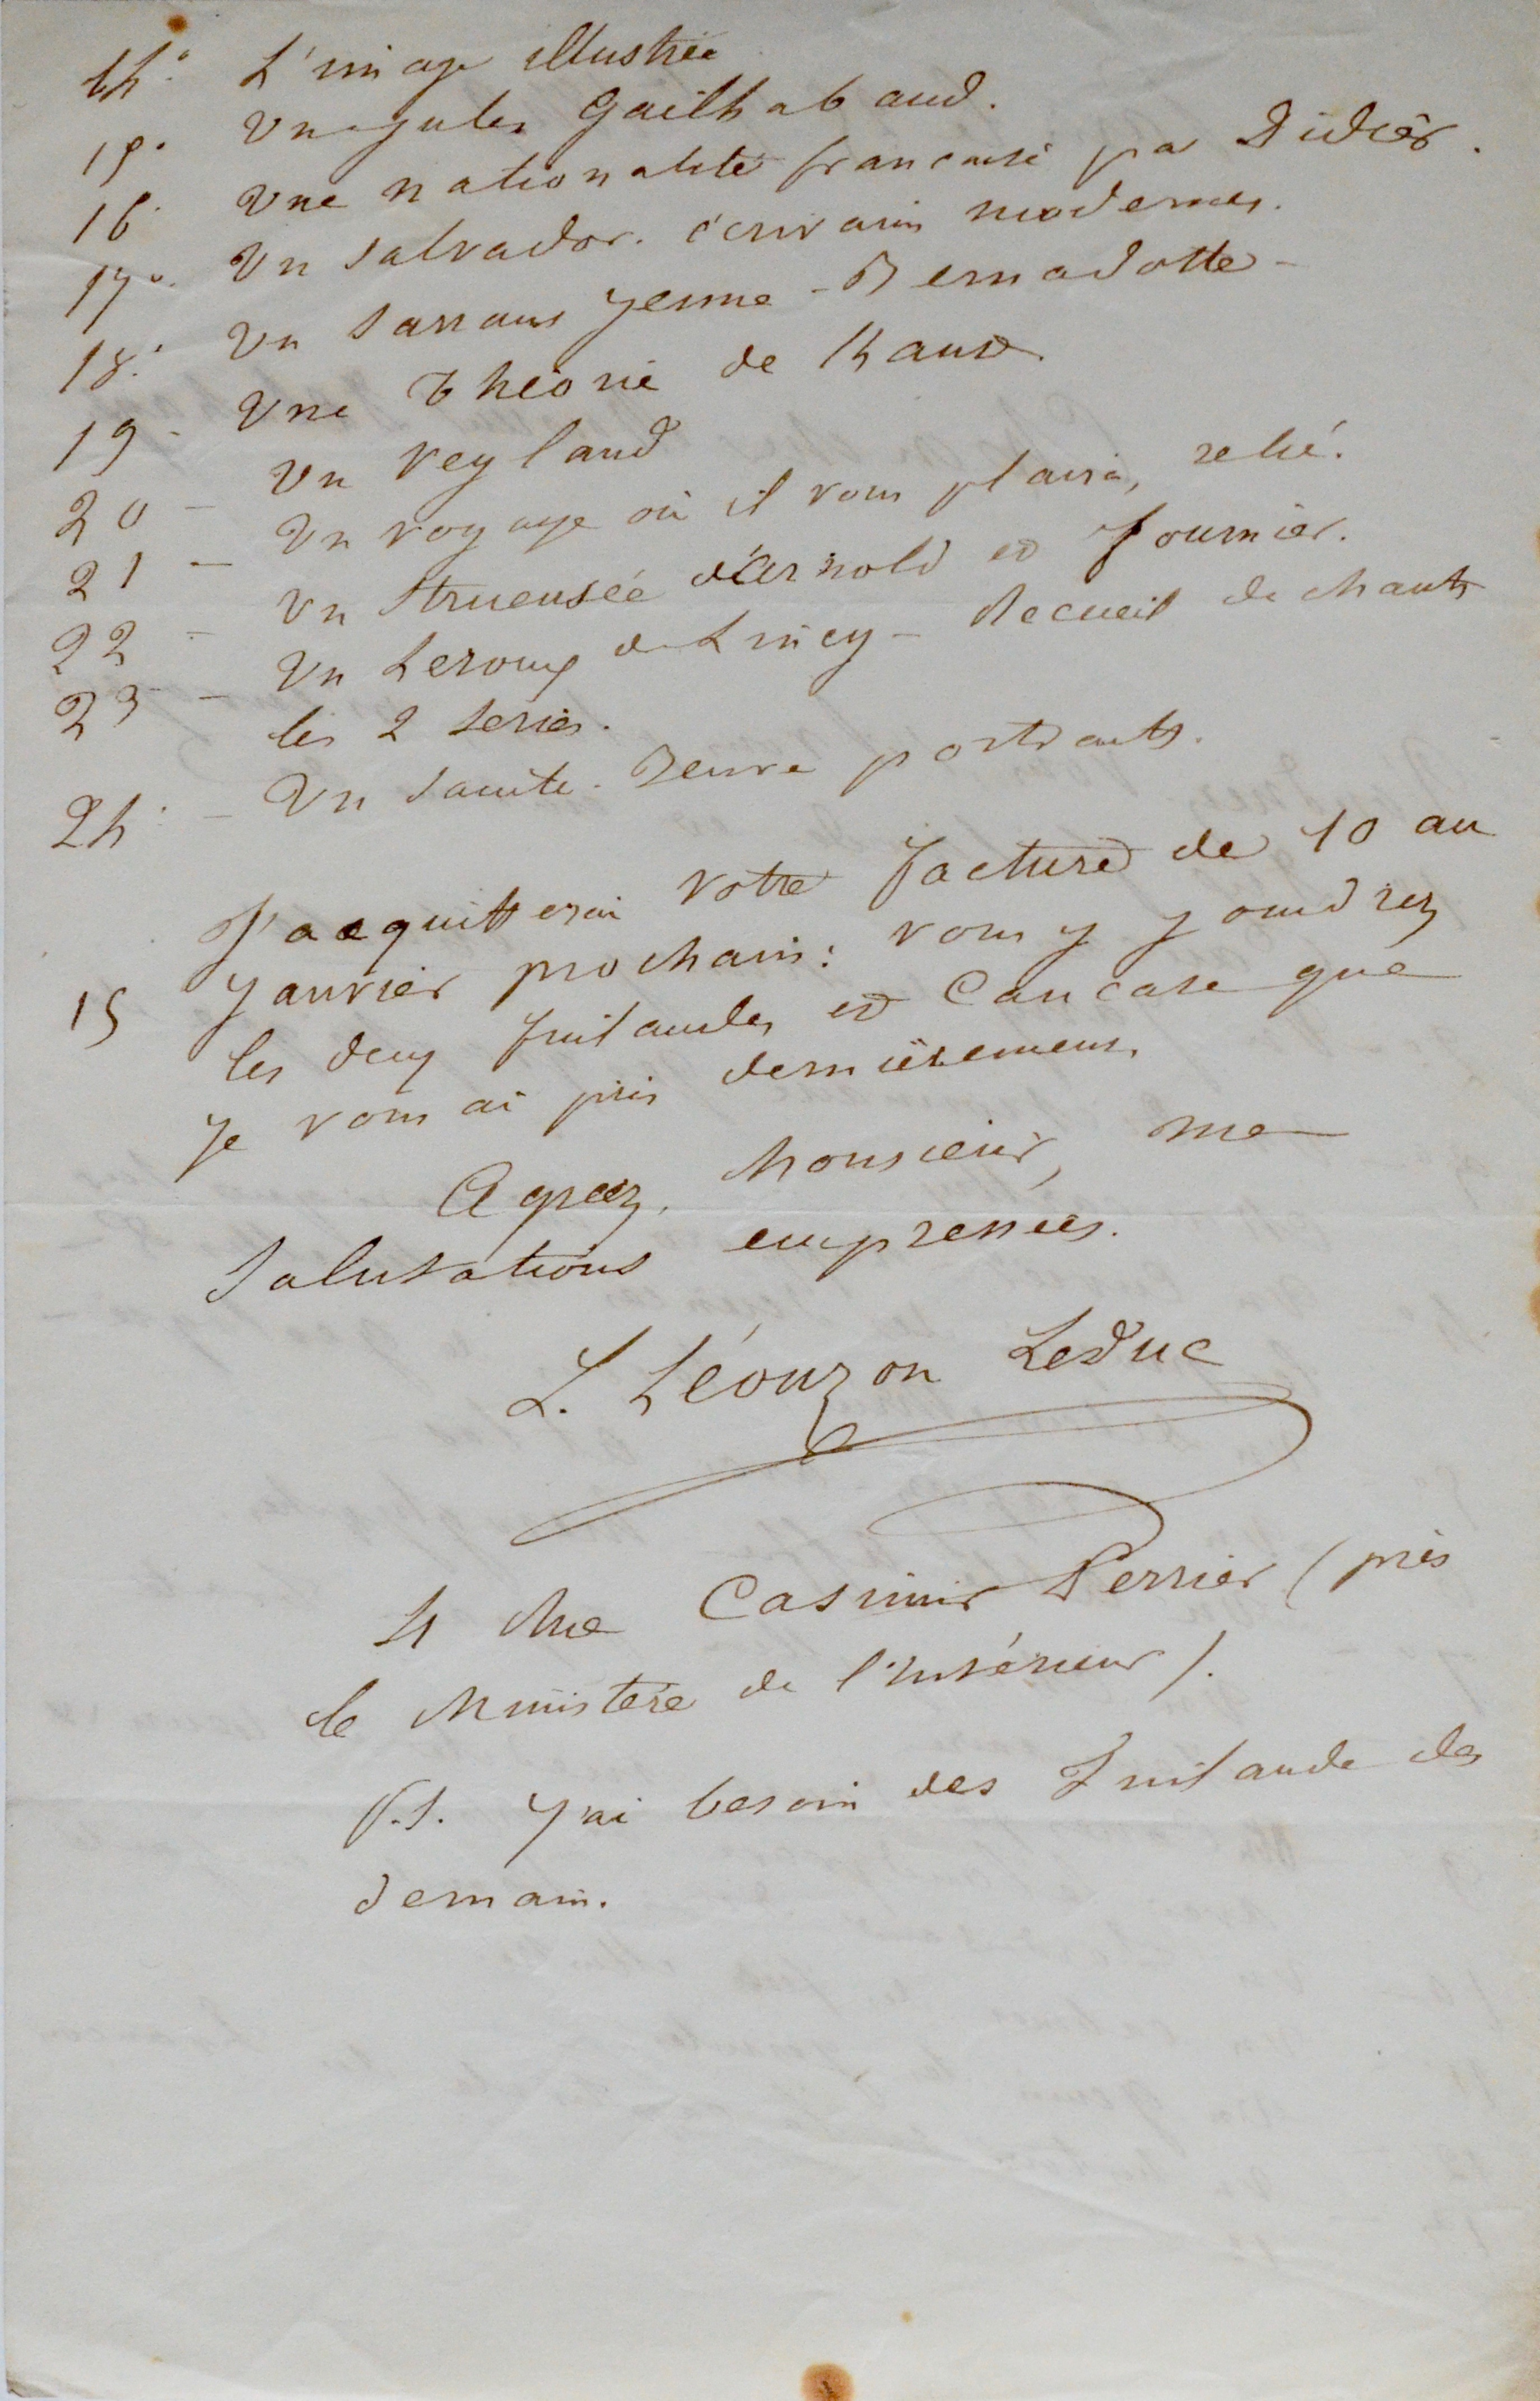 14° L'image illustrée
15° Un Jules Gailhabaud.
16 Une nationalité française par Didier.
17° Un Salvador. écrivains modernes.
18° Un Sarrans Jeune - Bernadotte -
19 - Une théorie de Kant.
20 - Un Reyband
21 - Un voyage où il vous plaira, relié.
22 - Un Struensée d'Arnold et Fournier.
23 - Un Leroux de Lincy - Recueil de chants
les 2 séries.
24 - Un Sainte-Beuve portraits.
J'acquitterai votre facture de 10 au
15 Janvier prochain: vous y joindrez
les deux et Caucase que
je vous ai pris dernièrement.
Agréez, Monsieur, mes
Salutations empressées.
L. Léouzon Leduc
4 Rue Casimir Perrier (près
le Ministère de l'Intérieur).
P.S. J'ai besoin des dès
demain.